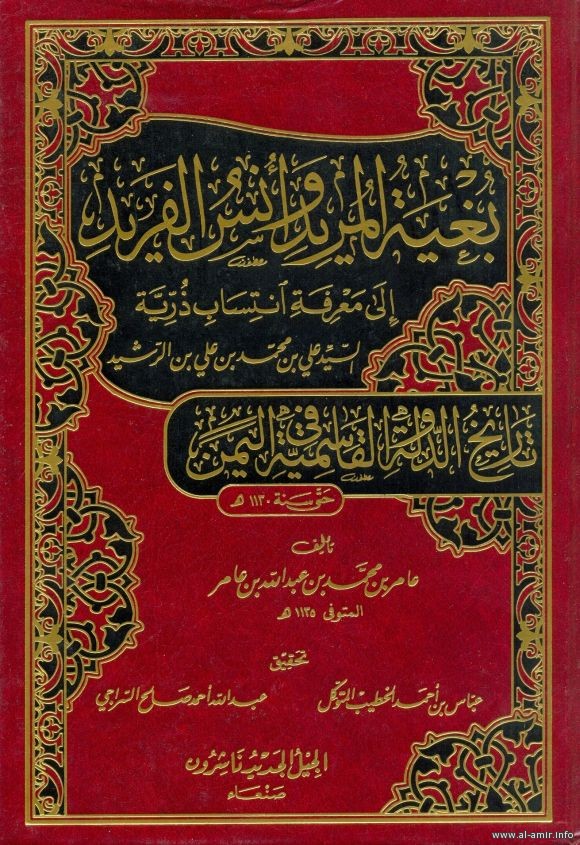 بُغْيَة المُرِيد وَأُنْس الفَرِيد
إلى مَعْرِفَةِ انْتِسَابِ ذُرِّيَّة
السَّيِّد علي بن محمَّد بن علي بن الرّشيد
تاريخ الدولة القاسمية في اليمن
حتى سنة ١١٣٠ هـ
تأليف
عامر بن محمَّد بن عبد اللّه بن عامر
المتوفى ١١٣٥ هـ
تحقيق
عبّاس بن أحمد الخطيب المتوكّل
عبد اللّه أحمد صلح السّراجي
الجيل الجديد ناشرون
صنعاء
www.al-amir.info